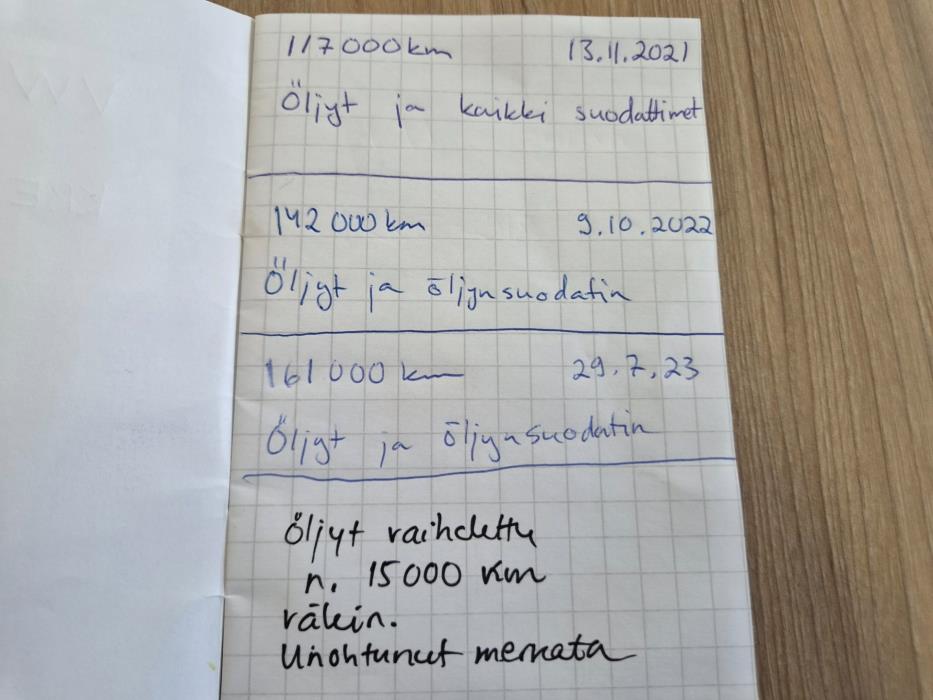 117 000 km 13.11.2021
Öljyt ja kaikki suodattimet
142 000 km 9.10.2022
Öljyt ja öljynsuodatin
161 000 km 29.7.23
Öljyt ja öljynsuodatin
Öljyt vaihdettu
n. 15000 km
välein.
Unohtunut merkata